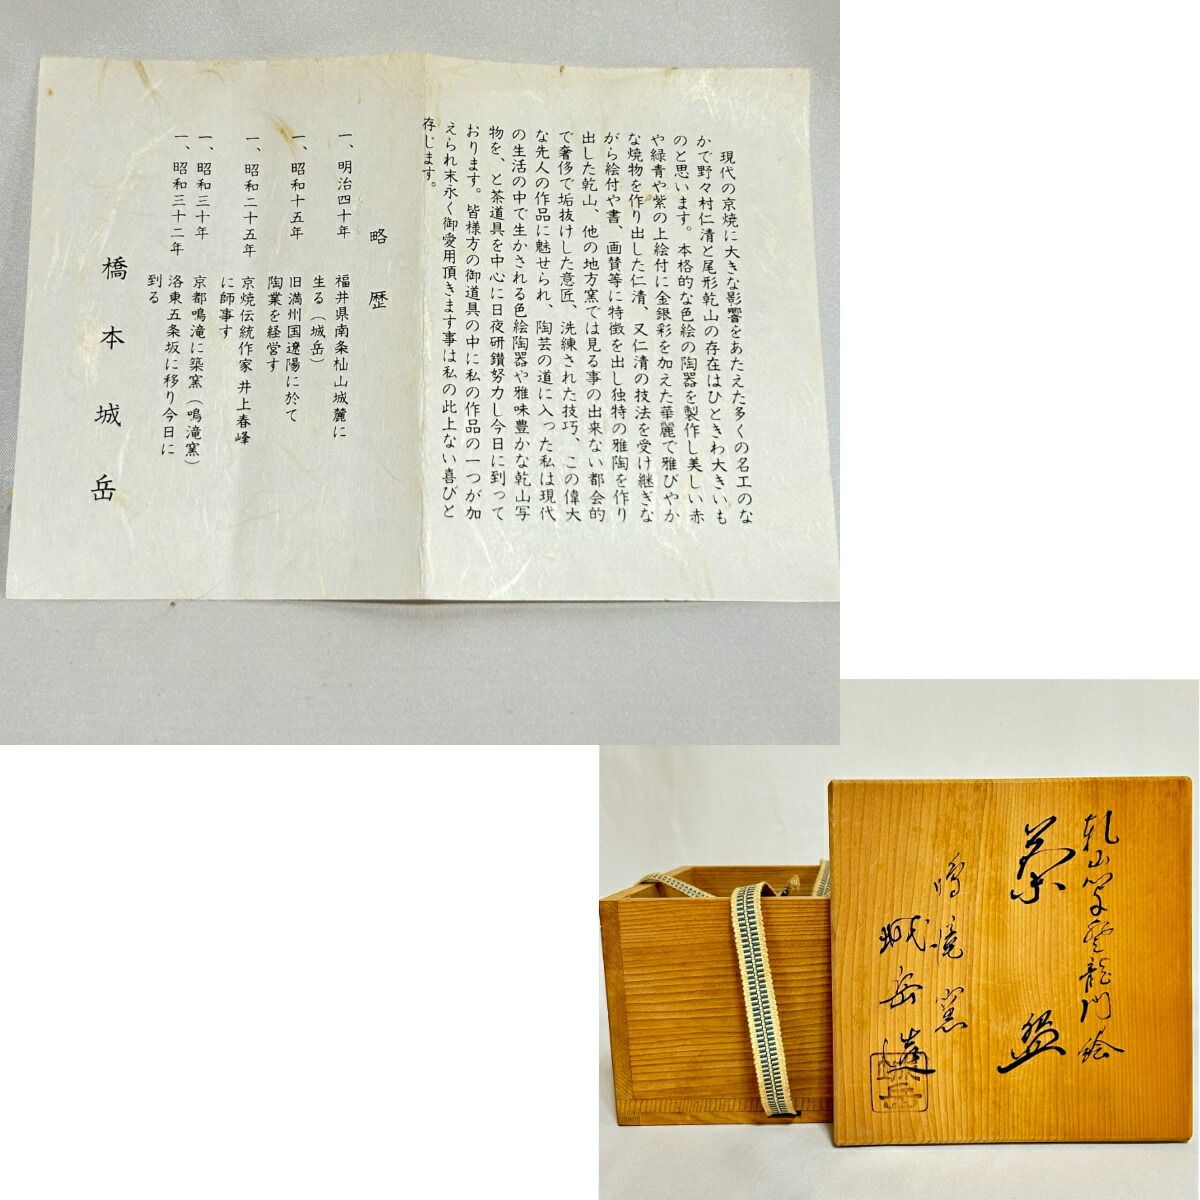 現代の京焼に大きな影響をあたえた多くの名工のな
かで野々村仁清と尾形乾山の存在はひときわ大きいも
のと思います。本格的な色絵の陶器を製作し美しい赤
や緑青や紫の上絵付に金銀彩を加えた華麗で雅びやか
な焼物を作り出した仁清、又仁清の技法を受け継ぎな
がら絵付や書、画賛等に特徴を出し独特の雅陶を作り
出した乾山、他の地方窯では見る事の出来ない都会的
で奢侈で垢抜けした意匠、洗練された技巧、この偉大
な先人の作品に魅せられ、陶芸の道に入った私は現代
の生活の中で生かされる色絵陶器や雅味豊かな乾山写
物を、と茶道具を中心に日夜研鑽努力し今日に到って
おります。皆様方の御道具の中に私の作品の一つが加
えられ末永く御愛用頂きます事は私の此上ない喜びと
存じます。
略歴
一、明治四十年 福井県南条杣山城麓に
生る（城岳）
一、昭和十五年 旧満州国遼陽に於て
陶業を経営す
一、昭和二十五年 京焼伝統作家 井上春峰
に師事す
一、昭和三十年 京都鳴滝に築窯（鳴滝窯）
一、昭和三十二年 洛東五条坂に移り今日に
到る
橋本城岳
乾山写雲龍門絵
茶盌
鳴滝窯
城岳造
城岳